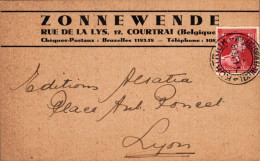 ZONNEWENDE
RUE DE LA LYS, 12, COURTRAI (Belgique
Chèques-Postaux : Bruxelles 1193.18 — Téléphone : 108
Editions Alsatia
Place Ant. Poncet
Lyon